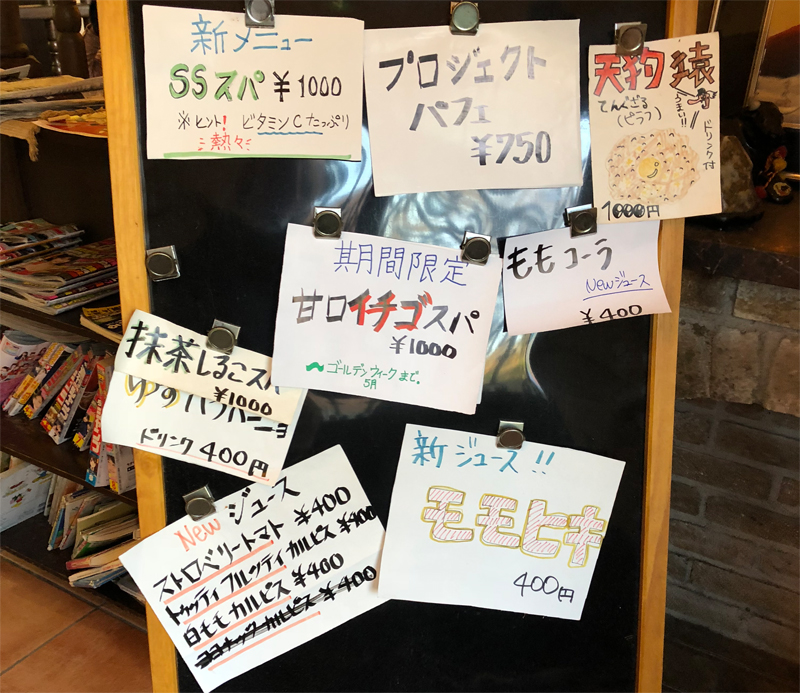 新メニュー
SSスパ ¥1000
※ヒント! ビタミンCたっぷり
熱々
プロジェクト
パフェ
¥750
天狗猿
てんぐざる
(ピラフ)
うまい!!
ドリンク付
1000円
期間限定
甘口イチゴスパ
¥1000
〜ゴールデンウィークまで。
5月
ももコーラ
Newジュース
¥400
抹茶しるこスパ
¥1000
ドリンク 400円
New ジュース
ストロベリートマト ¥400
トゥッティフルッティカルピス ¥400
白ももカルピス ¥400
ココナッツカルピス ¥400
新ジュース!!
モモヒキ
400円